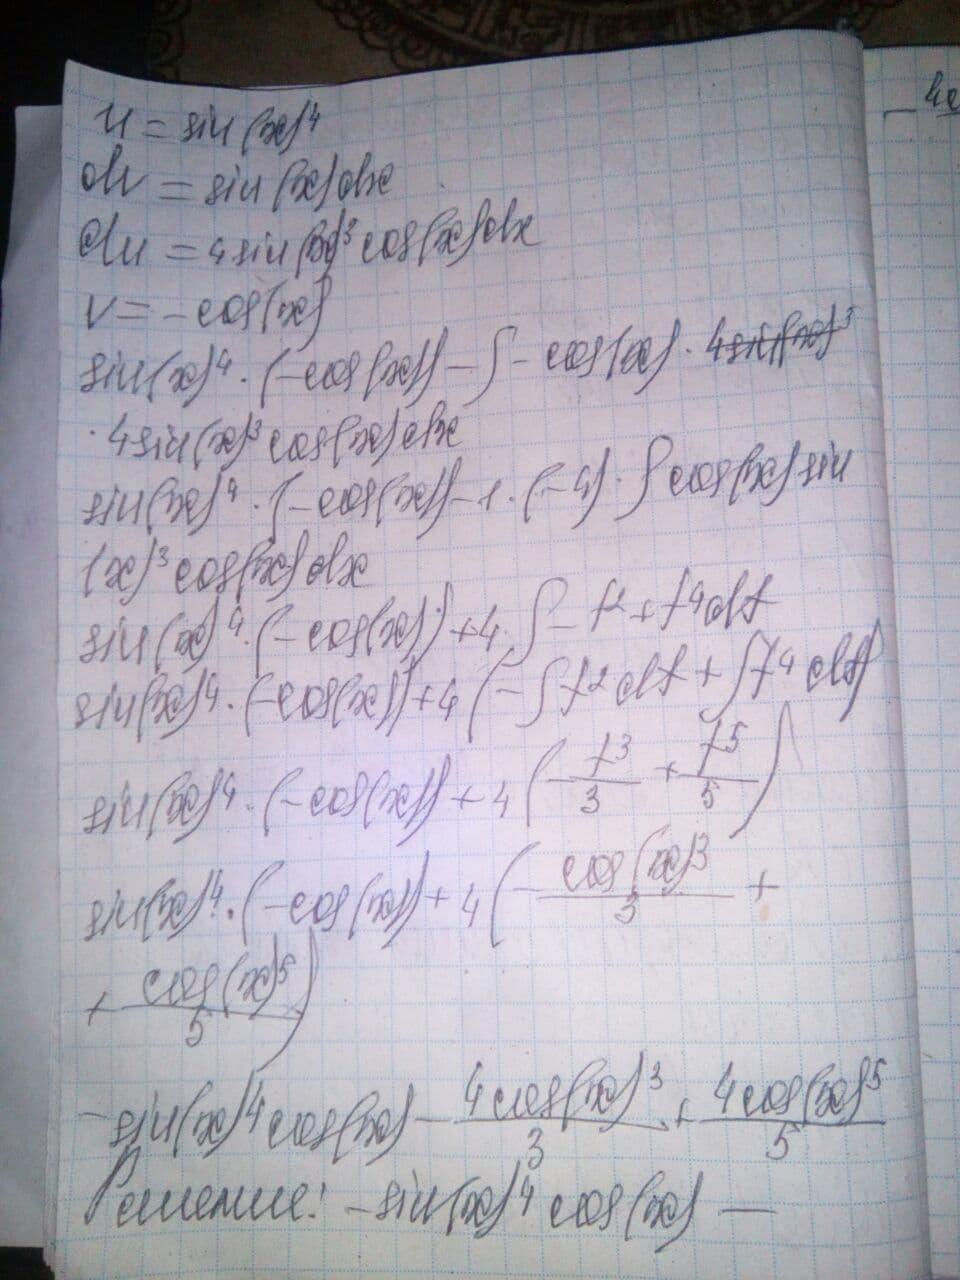 u = sin(x)^4
dv = sin(x)dx
du = 4sin(x)^3 cos(x)dx
v = -cos(x)
sin(x)^4 · (-cos(x)) - ∫ - cos(x) · 4sin(x)^3
· 4sin(x)^3 cos(x)dx
sin(x)^4 · (-cos(x)) - 1 · (-4) · ∫ cos(x) sin
(x)^3 cos(x)dx
sin(x)^4 · (-cos(x)) + 4 · ∫ - t^2 + t^4 dt
sin(x)^4 · (-cos(x)) + 4 (- ∫ t^2 dt + ∫ t^4 dt)
sin(x)^4 · (-cos(x)) + 4 (- t^3/3 + t^5/5)
sin(x)^4 · (-cos(x)) + 4 (- cos(x)^3/3 +
+ cos(x)^5/5)
- sin(x)^4 cos(x) - 4cos(x)^3/3 + 4cos(x)^5/5
Решение: - sin(x)^4 cos(x) —